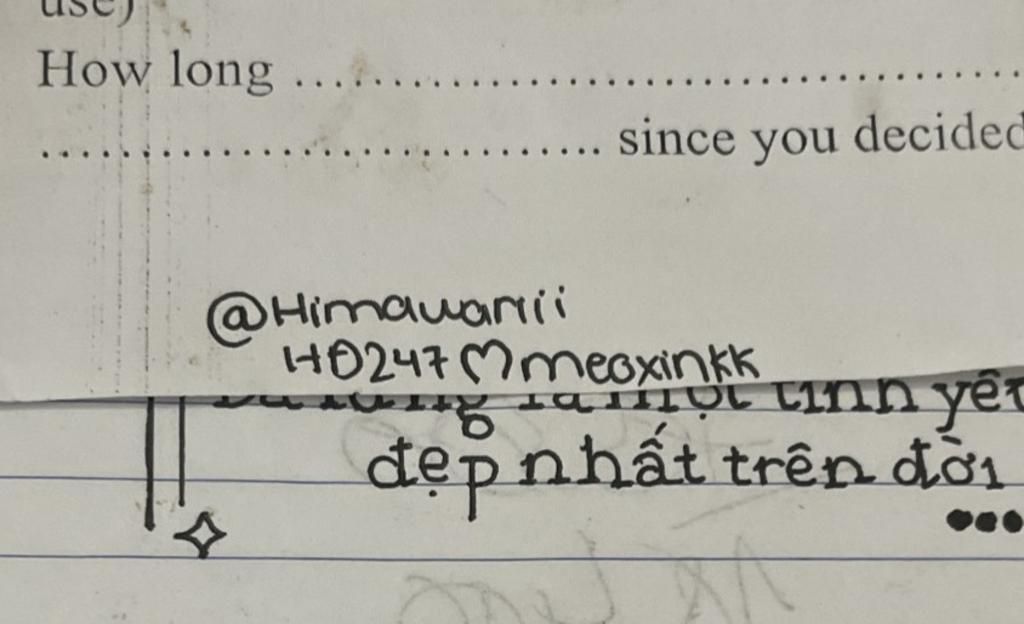 use)
How long ........................................
.............................. since you decided
@Himawarii
HD247♡meoxinkk
là một tình yêu
đẹp nhất trên đời
...